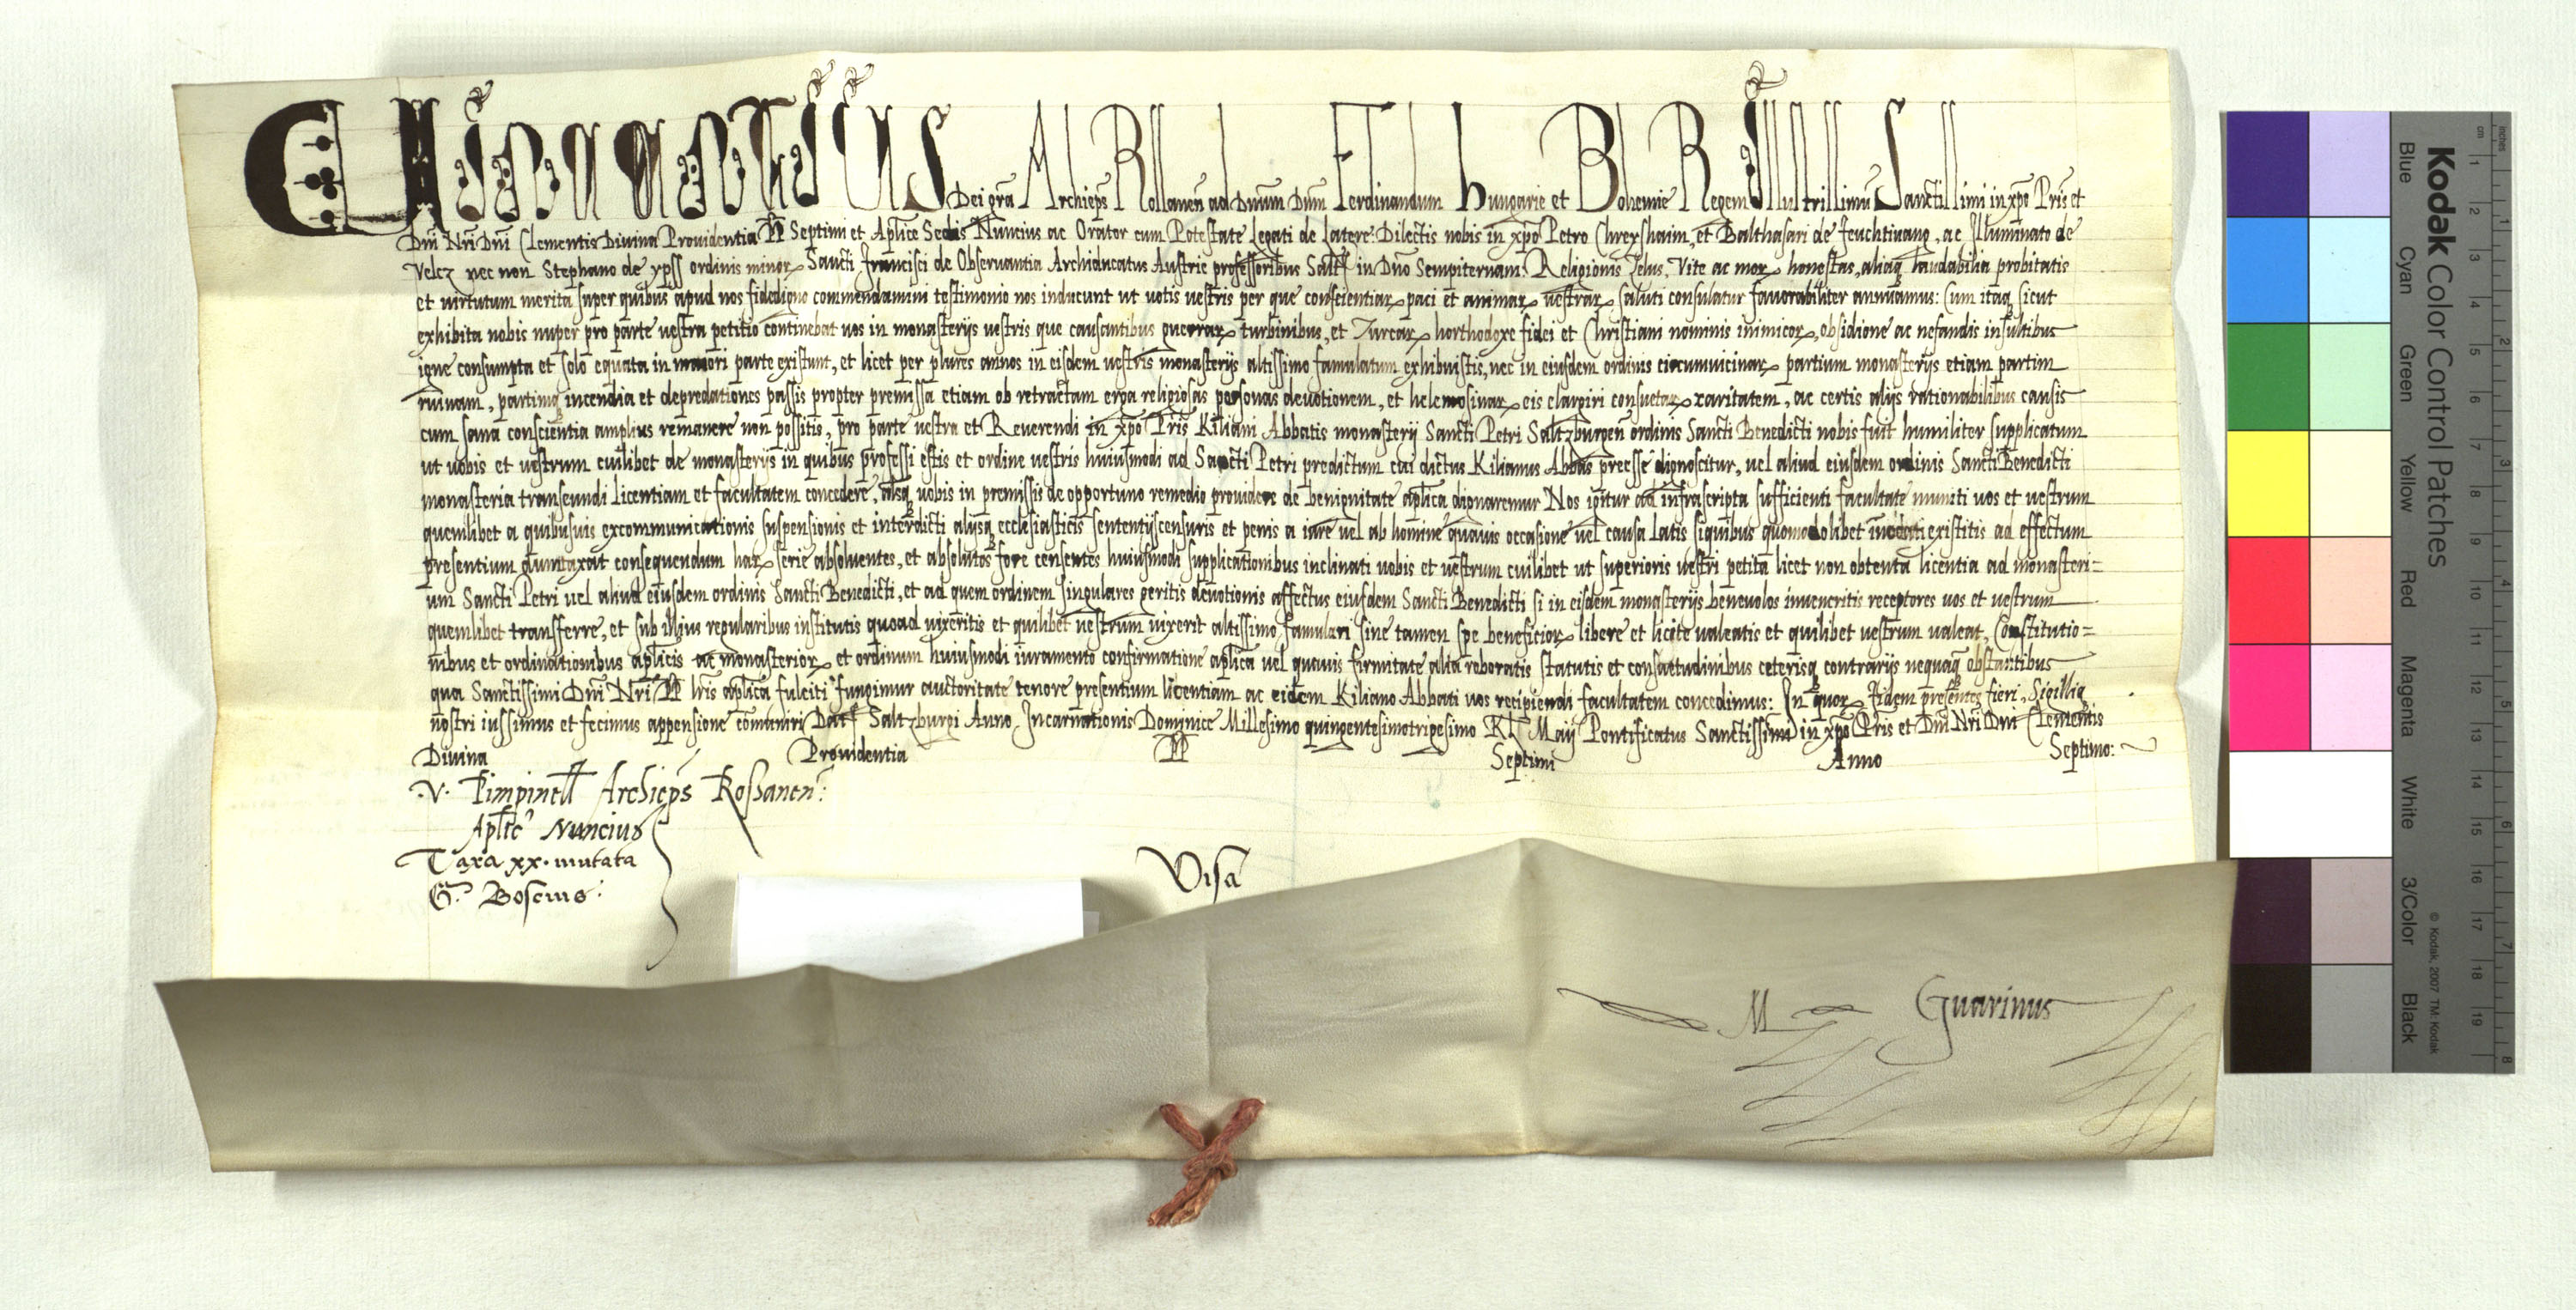 Vincentius Dei gra Archieps Rossanen ad Dnum Dnm Ferdinandum Hungarie et Bohemie Regem Illustrissimu Sanctissimi in xpo Pris et
Dni Nri Dni Clementis Divina Providentia PP Septimi et Aplice Sedis Nuncius ac Orator cum Potestate Legati de Latere: Dilectis nobis in xpo Petro Chrexshaim, et Balthasari de feuchtwang, ac Illuminato de
Velcz nec non Stephano de ypss ordinis minorꝝ Sancti francisci de Observantia Archiducatus Austrie professoribus Salt in Dno Sempiternam: Religionis Zelus, Vite ac morꝝ honestas, aliaq laudabilia probitatis
et uirtutum merita super quibus apud nos fidedigno commendamini testimonio nos inducunt ut uotis uestris per que conscientiarꝝ paci et animarꝝ uestrarꝝ saluti consulatur fauorabiliter annuamus: Cum itaq sicut
exhibita nobis nuper pro parte uestra petitio continebat uos in monasterijs uestris que causantibus guerrarꝝ turbinibus, et Turcarꝝ horthodoxe fidei et Christiani nominis inimicorꝝ, obsidione ac nefandis insultibus
igne consumpta et solo equata in maiori parte existunt, et licet per plures annos in eisdem uestris monasterijs altissimo famulatum exhibuistis, nec in eiusdem ordinis circumuicinarꝝ partium monasterijs etiam partim
ruinam, partimq incendia et depredationes passis propter premissa etiam ob retractam erga religiosas personas deuotionem, et helemosinarꝝ eis elargiri consuetarꝝ xaritatem, ac certis alijs rationabilibus causis
cum sana conscientia amplius remanere non possitis, pro parte uestra et Reuerendi in xpo Pris Kiliani Abbatis monasterij Sancti Petri Saltzburgen ordinis Sancti Benedicti nobis fuit humiliter supplicatum
ut uobis et uestrum cuilibet de monasterijs in quibus professi estis et ordine uestris huiusmodi ad Sancti Petri predictum cui dictus Kilianus Abbas preesse dignoscitur, uel aliud eiusdem ordinis Sancti Benedicti
monasteria transeundi licentiam et facultatem concedere, alsq uobis in premissis de opportuno remedio prouidere de benignitate aplica dignaremur Nos igitur ad infrascripta sufficienti facultate muniti uos et uestrum
quemlibet a quibusuis excommunicationis suspensionis et interdicti alijsq ecclesiasticis sententijs censuris et penis a iure uel ab homine quauis occasione uel causa latis siquibus quomodolibet inodati existitis ad effectum
presentium dumtaxat consequendum harꝝ serie absoluentes, et absolutos fore censentes huiusmodi supplicationibus inclinati uobis et uestrum cuilibet ut superioris uestri petita licet non obtenta licentia ad monasteri=
um Sancti Petri uel aliud eiusdem ordinis Sancti Benedicti, et ad quem ordinem singulares geritis deuotionis affectus eiusdem Sancti Benedicti si in eisdem monasterijs beneuolos inueneritis receptores uos et uestrum
quemlibet transferre, et sub illius regularibus institutis quoad uixeritis et quilibet uestrum uixerit altissimo famulari sine tamen spe beneficiorꝝ libere et licite ualeatis et quilibet uestrum ualeat, Constitutio=
nibus et ordinationibus aplicis ac monasteriorꝝ et ordinum huiusmodi iuramento confirmatione aplica uel quauis firmitate alia roboratis statutis et consuetudinibus ceterisq contrarijs nequaq obstantibus
qua Sanctissimi Dni Nri PP lris aplica fulciti fungimur auctoritate tenore presentium licentiam ac eidem Kiliano Abbati uos recipiendi facultatem concedimus: In quorꝝ fidem presentes fieri, Sigilliq
nostri iussimus et fecimus appensione comuniri Dat Saltzburgi Anno Incarnationis Dominice Millesimo quingentesimotrigesimo Kl Maij Pontificatus Sanctissimi in xpo Pris et Dni Nri Dni Clementis
Divina Providentia PP Septimi Anno Septimo:
.V. Pimpinell Archieps Rossanen:
Aplic Nuncius
Taxa xx. mutata
G. Boscius:
Visa
M Guarinus
Kodak Color Control Patches
Blue Cyan Green Yellow Red Magenta White 3/Color Black
© Kodak, 2007 TM: Kodak
inches 1 2 3 4 5 6 7 8
cm 1 2 3 4 5 6 7 8 9 10 11 12 13 14 15 16 17 18 19